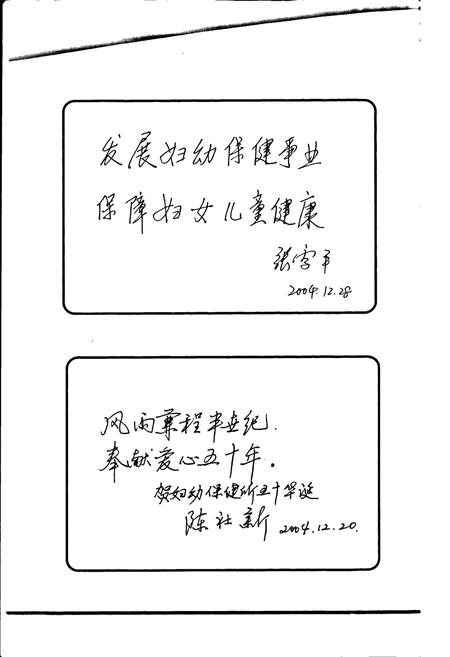 发展妇幼保健事业
保障妇女儿童健康
2004.12.28
风雨兼程半世纪.
奉献爱心五十年。
贺妇幼保健所五十华诞
陈社新 2004.12.20.